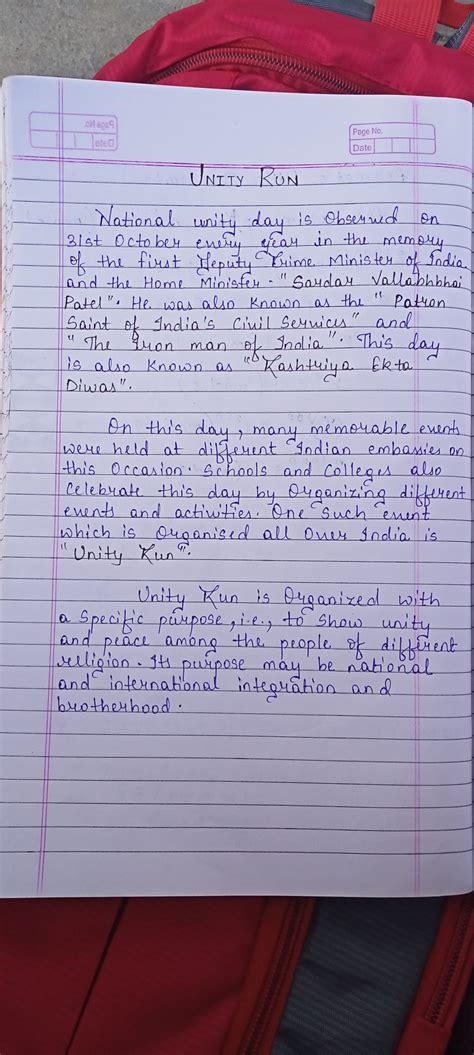 Page No.
Date
Page No.
Date
UNITY RUN
National unity day is Observed on
31st October every year in the memory
of the first Deputy Prime Minister of India
and the Home Minister - "Sardar Vallabhbhai
Patel". He was also known as the "Patron
Saint of India's Civil Services" and
"The Iron man of India". This day
is also known as "Rashtriya Ekta
Diwas".
On this day, many memorable events
were held at different Indian embassies on
this Occasion. Schools and Colleges also
celebrate this day by Organizing different
events and activities. One such event
which is Organised all Over India is
"Unity Run".
Unity Run is Organized with
a Specific purpose, i.e., to Show unity
and peace among the people of different
religion. Its purpose may be national
and international integration and
brotherhood.